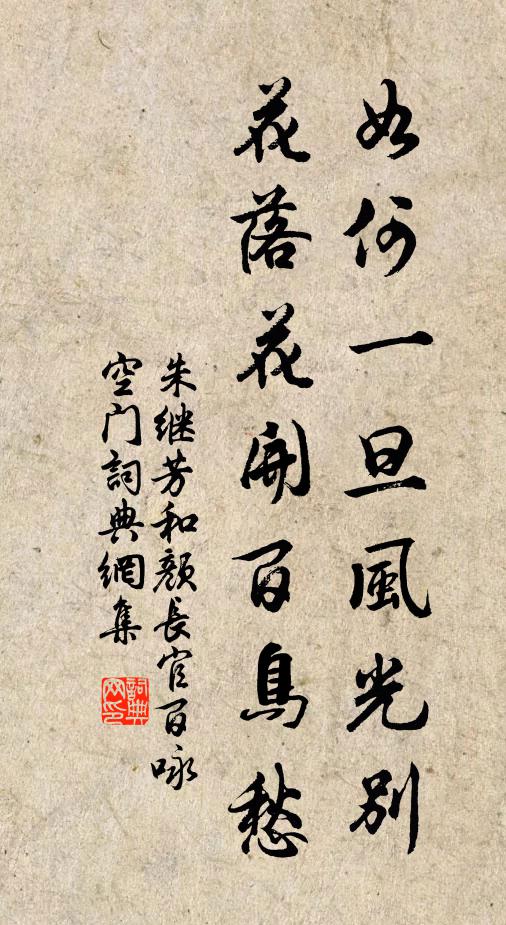 如何一旦風光別
花落花開百鳥愁
朱继芳和顏長官百咏
空门詞典網集
詞典
网印